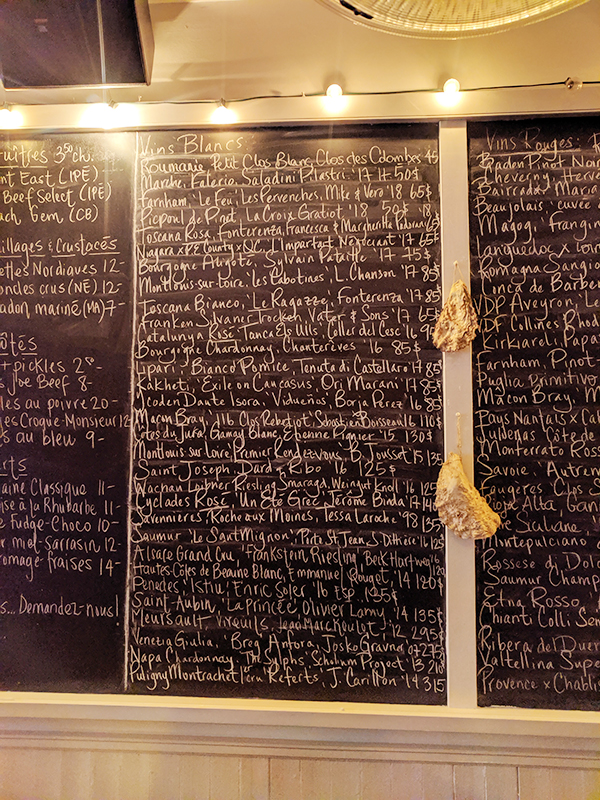 uîtres 3⁵⁰ch.
nt East (IPE)
Beef Select (IPE)
ach bem (CB)
illages & Crustacés
ettes Nordiques 12-
oncles crus (NE) 12-
adon mariné (MA) 7-
ôtés
+ pickles 2⁵⁰-
s Joe Beef 8-
les au poivre 20-
es Croque-Monsieur 12
s au bleu 9-
rts
aine Classique 11-
ise à la Rhubarbe 11-
e Fudge-Choco 10-
r miel-Sarrasin 12
omage-fraises 14-
s... Demandez-nous!
Vins Blancs:
Roumanie, Petit Clos Blanc, Clos des Colombes 45
Marche, Falerio, Saladini Pilastri '17 50$
Farnham, 'Le Feu', Les Pervenches, Mike & Véro '18 65$
Picpoul de Pinet, La Croix Gratiot '18 50$
Toscana Rosa, Fonterenza, Francesca & Margherita Padovani
Niagara x PE County x QC, L'Impartait Négociant '17 65
Bourgogne Aligoté, Sylvain Pataille '17 75$
Montlouis-sur-Loire, 'Les Cabotines', L. Chanson '17 85
Toscana Bianco, 'Le Ragazze', Fonterenza '17 85
Franken Silvaner Trocken, Vater & Sons '17 65
Catalunya Rosé, Tanca Els Ulls, Celler del Cesc '16
Bourgogne Chardonnay, Chantereves '16 85$
Lipari, Bianco Pomice, Tenuta di Castellaro '17 85
Kakheti, 'Exile on Caucasus', Ori Marani '17 85$
Ycoden Daute Isora, Vidueños, Borja Perez '16 85
Macon Bray, 116 Clos Rebetjot, Sebastien Boisseau '16 110$
Côtes du Jura, Gamay Blanc, Etienne Pignier '15 130$
Montlouis sur Loire, Premier Rendezvous, B. Jousset '15
Saint Joseph, Dard & Ribo '16 125$
Wachau Loibner Riesling Smaragd, Weingut Knoll '16
Cyclades Rosé, Un Eté Grec, Jérome Binda '17
Savennières, Roche aux Moines, Tessa Laroche '98 135
Saumur, 'Le Sant Mignon', S. Dittière '16
Alsace Grand Cru, Frankstein Riesling, Beck Hartweg
Hautes-Côtes de Beaune Blanc, Emmanuel Rouget, '14 120$
Penedes, 'Istiu', Enric Soler '16 125$
Saint-Aubin, 'La Princée', Olivier Lamy '14 135
Meursault Vireuils, Jean Marc Roulot '12 295$
Venezia Giulia, 'Breg' Anfora, Josko Gravner 07 275
Napa Chardonnay, 'The Sylphs', Scholium Project '13
Puligny Montrachet 1er cru Referts, J. Carillon '14 315
Vins Rouges:
Baden Pinot Noir
Cheverny, Herve
Bairrada, Maria
Beaujolais, cuvée
Magog, Frangin
anguedoc x Loire
Romagna Sangio
onca de Barbe
VDP Aveyron, 'Le
IDF Collines Rhod
Kirkiareli, Papa
Farnham, Pinot-
Puglia Primitivo
Macon Bray, M
Pays Nantais x Cal
Ludenas, Côte de
Monferrato Ross
Savoie, 'Autrem
Faugeres, Clos
Rioja Alta, Gan
Montepulciano
Rossese di Dolc
Saumur Champ
Etna Rosso
Chianti Colli Sen
Ribera del Duer
Valtellina Supe
Provence x Chablis